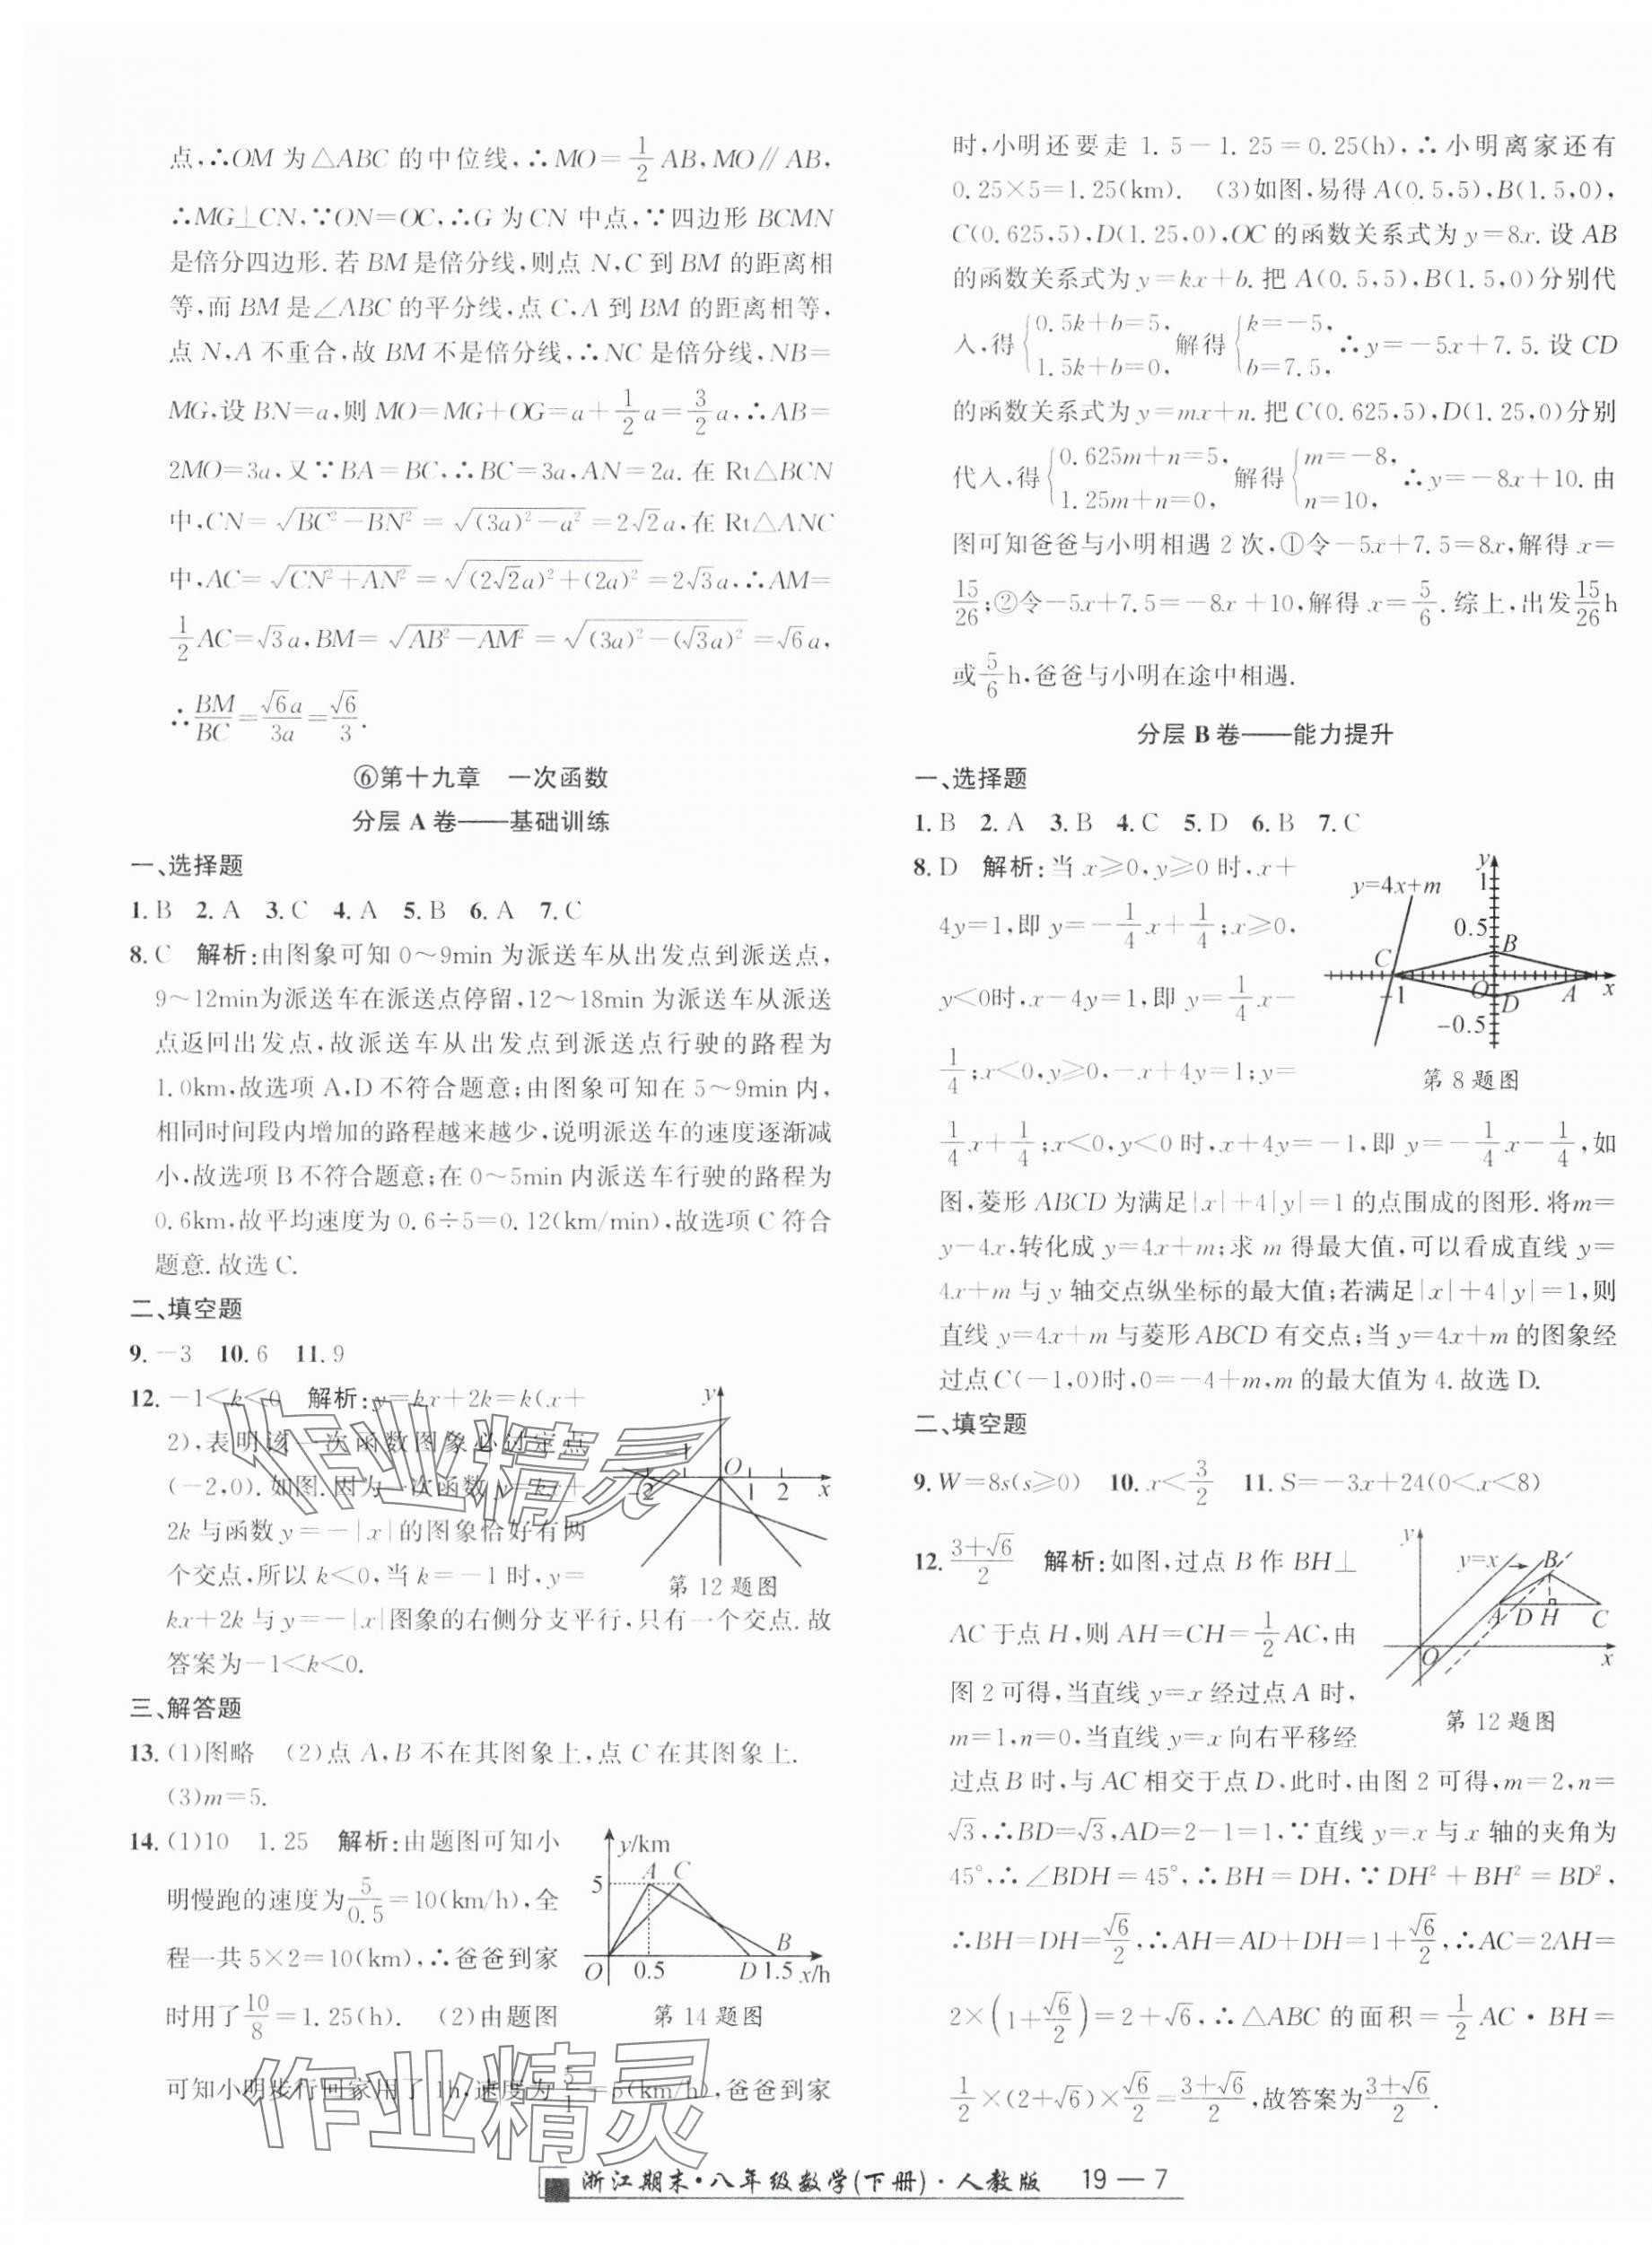 点,∴OM 为△ABC 的中位线,∴MO=1/2 AB,MO∥AB,
∴MG⊥CN,∵ON=OC,∴G 为 CN 中点,∵四边形 BCMN
是倍分四边形.若 BM 是倍分线,则点 N,C 到 BM 的距离相
等,而 BM 是∠ABC 的平分线,点 C,A 到 BM 的距离相等,
点 N,A 不重合,故 BM 不是倍分线,∴NC 是倍分线,NB=
MG,设 BN=a,则 MO=MG+OG=a+1/2 a=3/2 a,∴AB=
2MO=3a,又∵BA=BC,∴BC=3a,AN=2a.在 Rt△BCN
中,CN=√(BC²-BN²)=√((3a)²-a²)=2√2a,在 Rt△ANC
中,AC=√(CN²+AN²)=√((2√2a)²+(2a)²)=2√3a,∴AM=
1/2 AC=√3a,BM=√(AB²-AM²)=√((3a)²-(√3a)²)=√6a,
∴BM/BC=√6a/3a=√6/3.
⑥第十九章 一次函数
分层 A 卷——基础训练
一、选择题
1.B 2.A 3.C 4.A 5.B 6.A 7.C
8.C 解析:由图象可知 0～9min 为派送车从出发点到派送点,
9～12min为派送车在派送点停留,12～18min 为派送车从派送
点返回出发点,故派送车从出发点到派送点行驶的路程为
1.0km,故选项 A,D 不符合题意;由图象可知在 5～9min 内,
相同时间段内增加的路程越来越少,说明派送车的速度逐渐减
小,故选项 B 不符合题意;在 0～5min 内派送车行驶的路程为
0.6km,故平均速度为 0.6÷5=0.12(km/min),故选项 C 符合
题意.故选 C.
二、填空题
9.-3 10.6 11.9
12.-1<k<0 解析:y=kx+2k=k(x+
2),表明该一次函数图象必过定点
(-2,0).如图.因为一次函数 y=kx+
2k 与函数 y=-|x|的图象恰好有两
个交点,所以 k<0,当 k=-1 时,y=
kx+2k 与 y=-|x|图象的右侧分支平行,只有一个交点.故
答案为-1<k<0.
y
-1
O
-2
1 2 x
第12题图
三、解答题
13.(1)图略 (2)点 A,B 不在其图象上,点 C 在其图象上.
(3)m=5.
14.(1)10 1.25 解析:由题图可知小
明慢跑的速度为5/0.5=10(km/h),全
程一共 5×2=10(km),∴爸爸到家
时用了10/8=1.25(h). (2)由题图
可知小明步行回家用了 1h,速度为5/1=5(km/h),爸爸到家
y/km
A C
5
B
O 0.5 D 1.5 x/h
第14题图
时,小明还要走 1.5-1.25=0.25(h),∴小明离家还有
0.25×5=1.25(km). (3)如图,易得 A(0.5,5),B(1.5,0),
C(0.625,5),D(1.25,0),OC 的函数关系式为 y=8x.设 AB
的函数关系式为 y=kx+b.把 A(0.5,5),B(1.5,0)分别代
入,得{0.5k+b=5, 1.5k+b=0, 解得{k=-5, b=7.5, ∴y=-5x+7.5.设 CD
的函数关系式为 y=mx+n.把 C(0.625,5),D(1.25,0)分别
代入,得{0.625m+n=5, 1.25m+n=0, 解得{m=-8, n=10, ∴y=-8x+10.由
图可知爸爸与小明相遇 2 次,①令-5x+7.5=8x,解得 x=
15/26;②令-5x+7.5=-8x+10,解得 x=5/6.综上,出发15/26h
或5/6h,爸爸与小明在途中相遇.
分层 B 卷——能力提升
一、选择题
1.B 2.A 3.B 4.C 5.D 6.B 7.C
8.D 解析:当 x≥0,y≥0 时,x+
4y=1,即 y=-1/4 x+1/4;x≥0,
y<0时,x-4y=1,即 y=1/4 x-
1/4;x<0,y≥0,-x+4y=1;y=
1/4 x+1/4;x<0,y<0 时,x+4y=-1,即 y=-1/4 x-1/4,如
图,菱形 ABCD 为满足|x|+4|y|=1 的点围成的图形.将m=
y-4x,转化成 y=4x+m;求 m 得最大值,可以看成直线 y=
4x+m 与 y 轴交点纵坐标的最大值;若满足|x|+4|y|=1,则
直线 y=4x+m 与菱形 ABCD 有交点;当 y=4x+m 的图象经
过点 C(-1,0)时,0=-4+m,m 的最大值为 4.故选 D.
y
y=4x+m
1
0.5
B
C
-1 O D A x
-0.5
第8题图
二、填空题
9.W=8s(s≥0) 10.x<3/2 11.S=-3x+24(0<x<8)
12.(3+√6)/2 解析:如图,过点 B 作 BH⊥
AC 于点 H,则 AH=CH=1/2 AC,由
图 2 可得,当直线 y=x 经过点 A 时,
m=1,n=0,当直线 y=x 向右平移经
过点 B 时,与 AC 相交于点 D,此时,由图 2 可得,m=2,n=
√3,∴BD=√3,AD=2-1=1,∵直线 y=x 与 x 轴的夹角为
45°,∴∠BDH=45°,∴BH=DH,∵DH²+BH²=BD²,
∴BH=DH=√6/2,∴AH=AD+DH=1+√6/2,∴AC=2AH=
2×(1+√6/2)=2+√6,∴△ABC 的面积=1/2 AC·BH=
1/2×(2+√6)×√6/2=(3+√6)/2,故答案为(3+√6)/2.
y
y=x B
A D H C
O x
第12题图
作业精灵
作业精灵
浙江期末·八年级数学(下册)·人教版 19—7